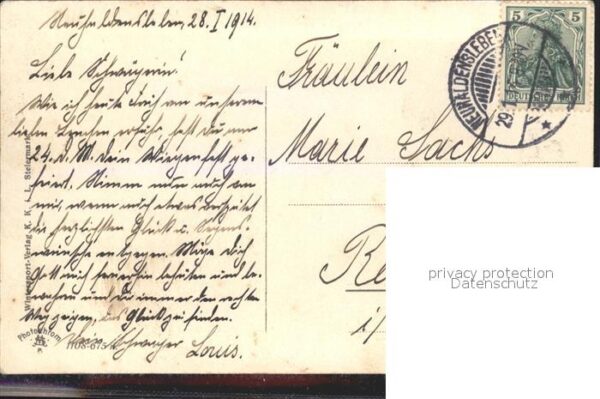 Neuhaldensleben, 28. I 1914.
Liebe Schwägerin!
Wie ich heute früh von unserem
lieben erfuhr, hast du am
24. d. M. dein Wiegenfest ge-
feiert. Nimm nun auch von
mir, wenn auch etwas verspätet
die herzlichsten Glück u. Segens-
wünsche entgegen. Möge dich
Gott auch fernerhin behüten und be-
wahren und dir immer den rechten
Weg zeigen, das Glück zu finden.
Dein Schwager
Louis.
Fräulein
Marie Sachs
Re
i/
5 5
DEUTSCHES REICH
NEUHALDENSLEBEN
29.1
Wintersport-Verlag K. K. i. L. Steiermark
Photochrom
1108-675
privacy protection
Datenschutz